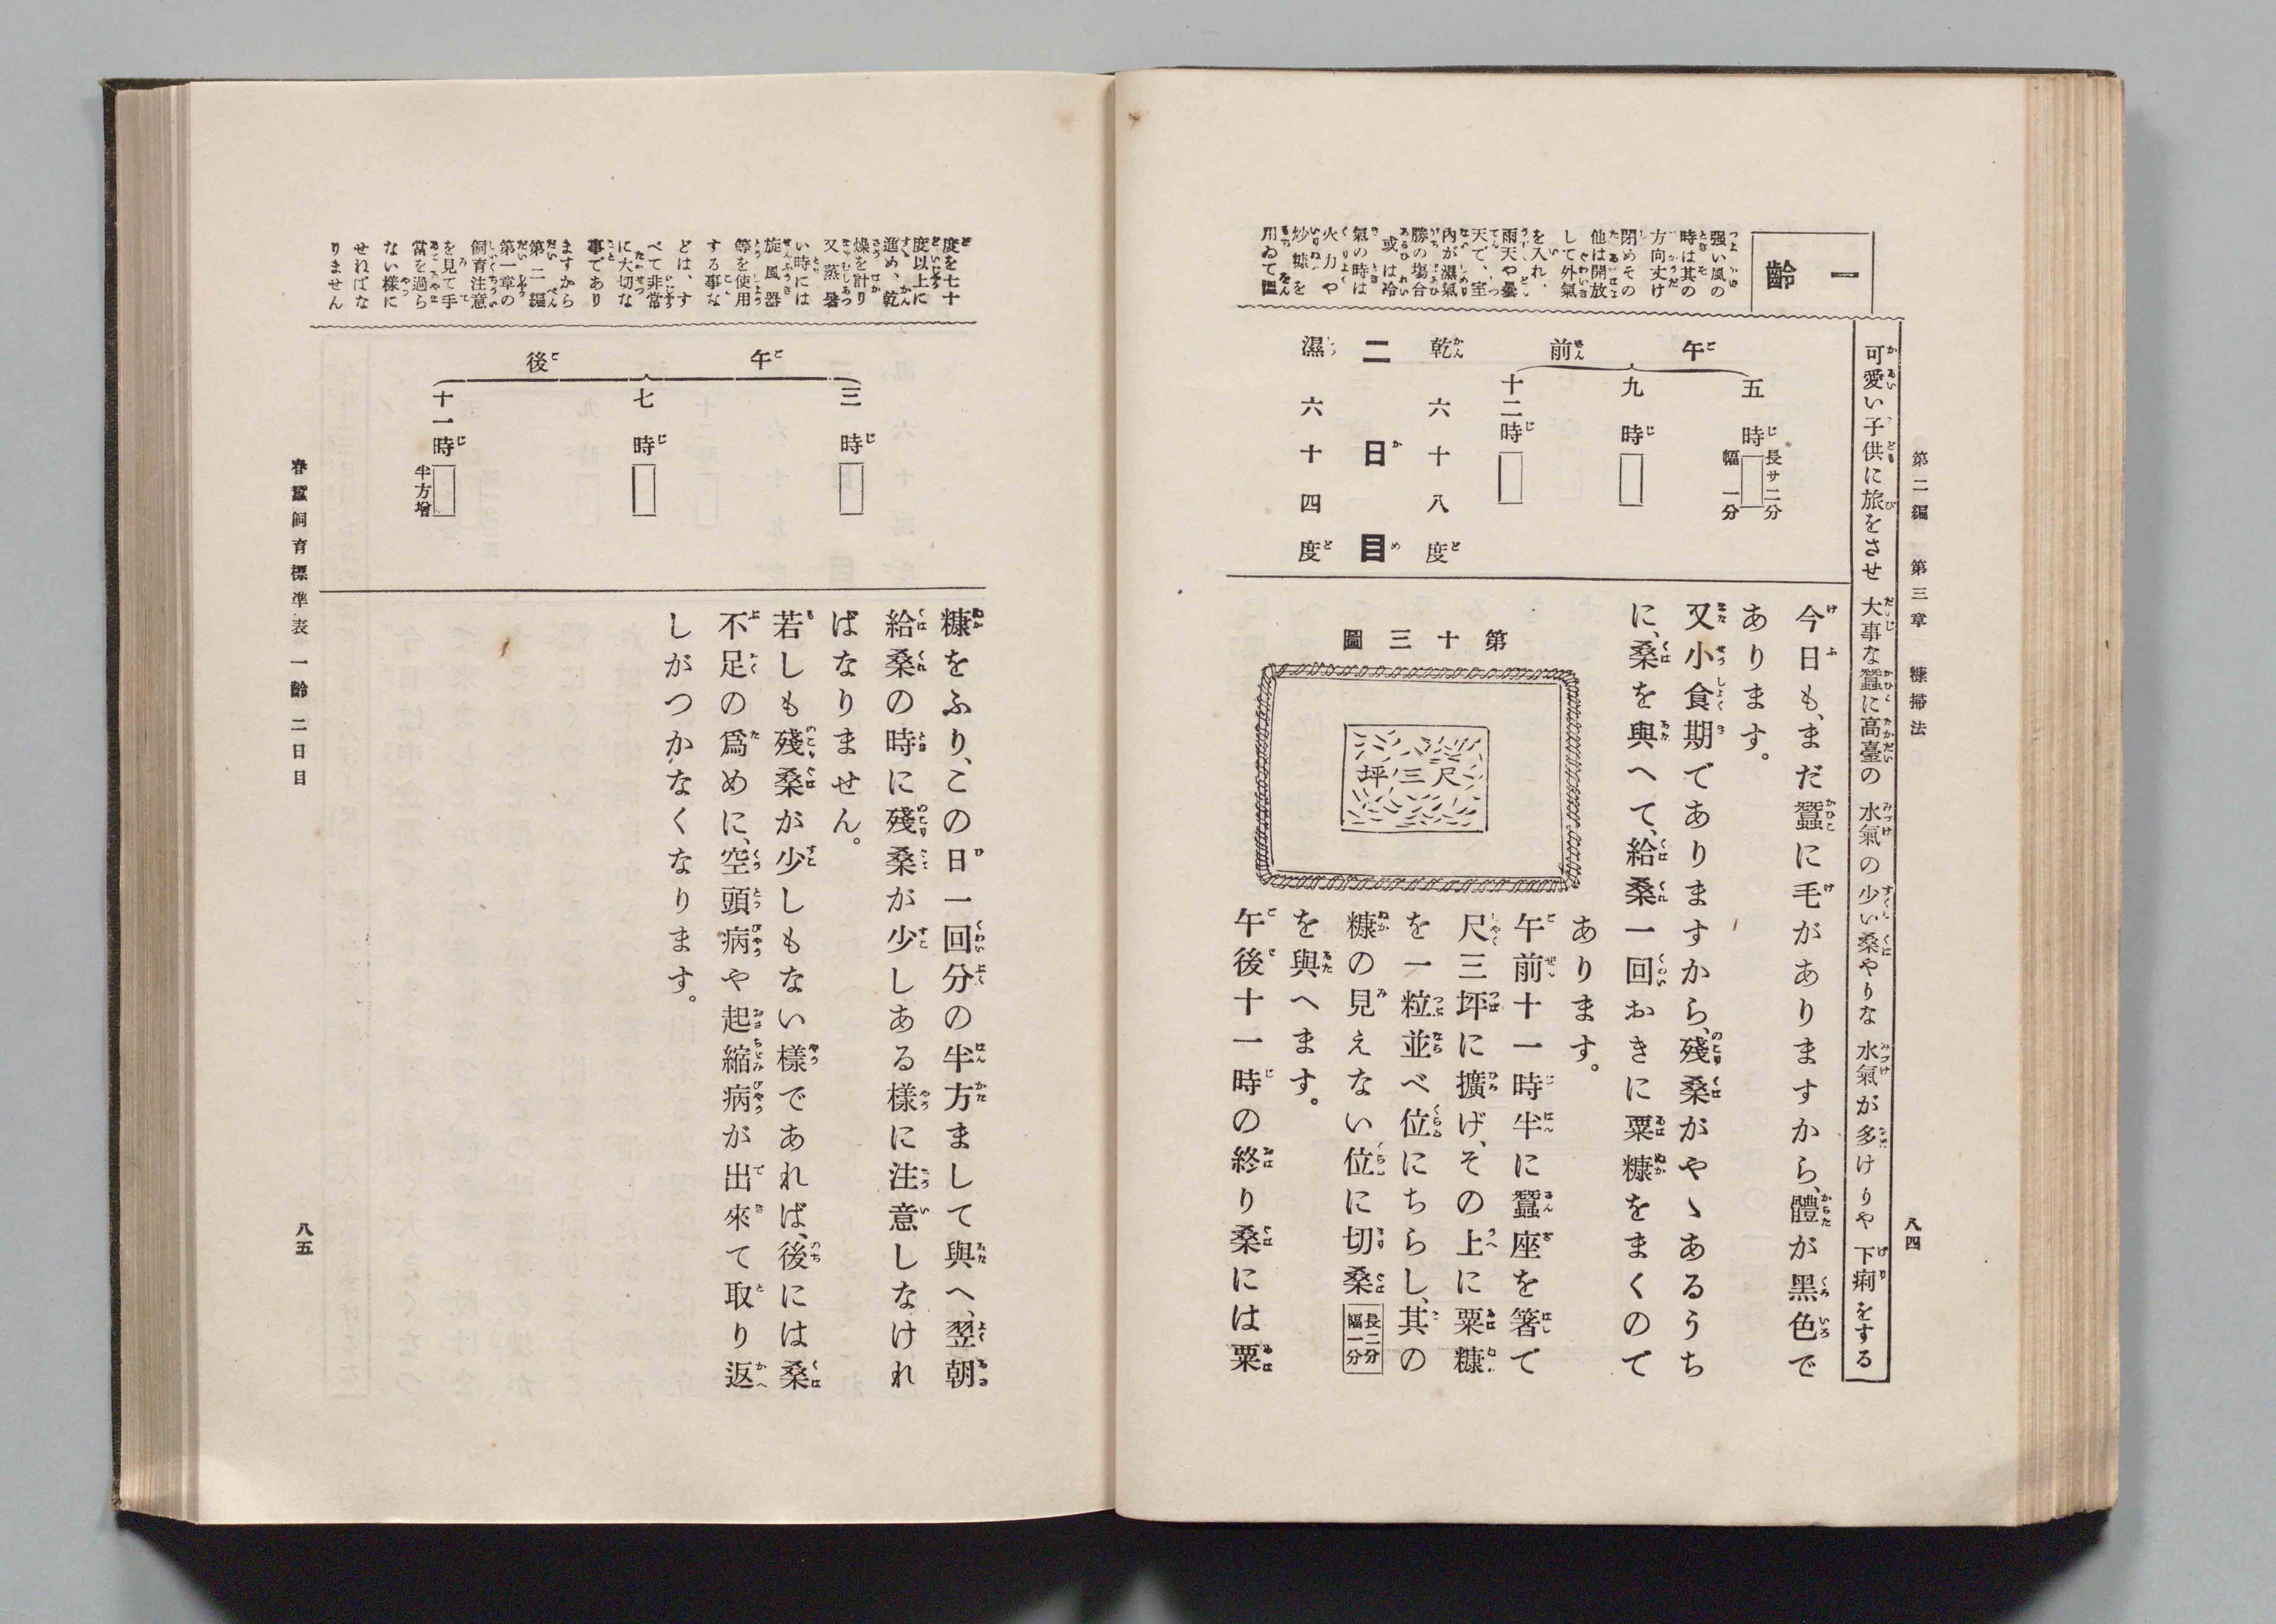 第二編 第三章 糠掃法
八四
可愛い子供に旅をさせ 大事な蠶に高臺の 水氣の少い桑やりな 水氣が多けりや 下痢をする
一齡
强い風の
時は其の
方向丈け
閉めその
他は開放
して外氣
を入れ、
雨天や曇
天で、室
內が濕氣
勝の塲合
或は冷
氣の時は
火力や
炒糠を
用ゐて溫
午前
五時 長サ二分 幅一分
九時
十二時
乾 六十八度
二日目
濕 六十四度
今日も、まだ蠶に毛がありますから、體が黑色で
あります。
又小食期でありますから、殘桑がやゝあるうち
に、桑を與へて、給桑一回おきに粟糠をまくので
あります。
第十三圖
尺三坪
午前十一時半に蠶座を箸で
尺三坪に擴げ、その上に粟糠
を一粒並べ位にちらし、其の
糠の見えない位に切桑 長二分 幅一分
を與へます。
午後十一時の終り桑には粟
度を七十
度以上に
進め、乾
燥を計り
又蒸暑
い時には
旋風器
等を使用
する事な
どは、す
べて非常
に大切な
事であり
ますから
第二編
第一章の
飼育注意
を見て手
當を過ら
ない樣に
せねばな
りません
午後
三時
七時
十一時 半方增
糠をふり、この日一回分の半方まして與へ、翌朝
給桑の時に殘桑が少しある樣に注意しなけれ
ばなりません。
若しも殘桑が少しもない樣であれば、後には桑
不足の爲めに、空頭病や起縮病が出來て取り返
しがつかなくなります。
春蠶飼育標準表 一齡 二日目
八五